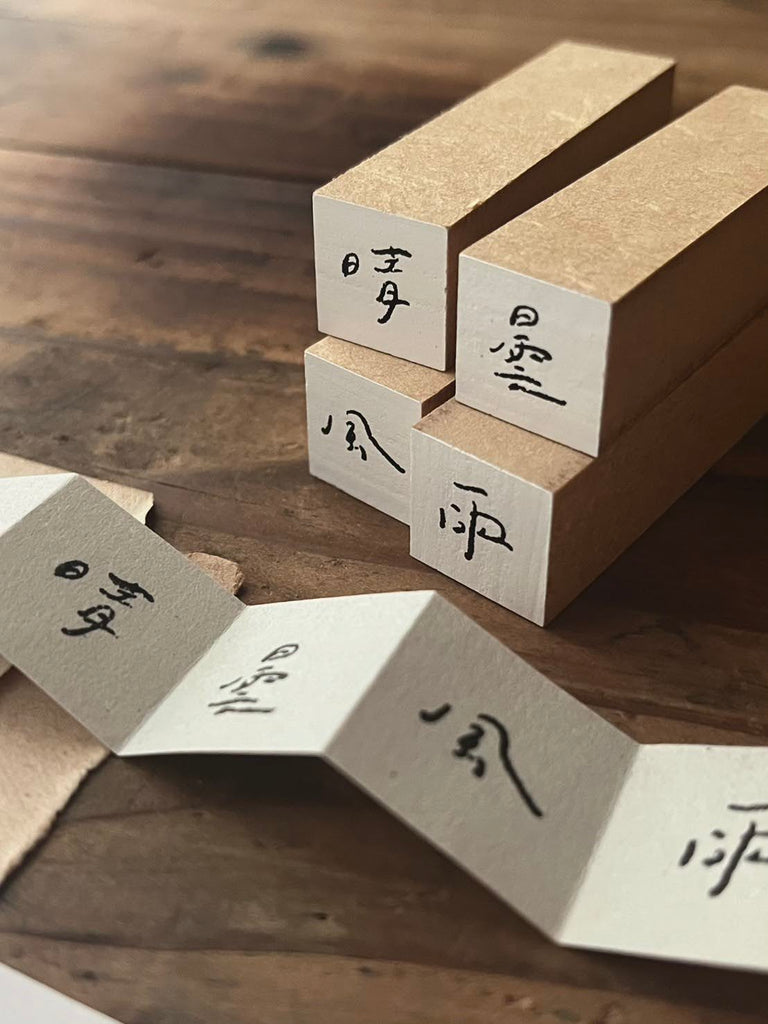 晴
曇
風
雨
晴
曇
風
雨